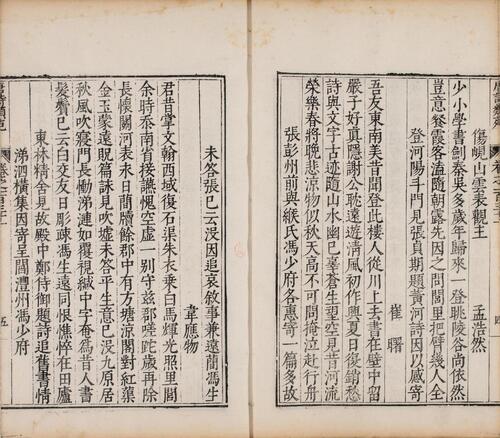 傷峴山雲表觀主
孟浩然
少小學書劍秦吳多歲年歸來一登眺陵谷尚依然
豈意餐霞客溘隨朝露先因之問閭里把臂幾人全
登河陽斗門見張貞期題黃河詩因以感寄
崔曙
吾友東南美昔聞登此樓人從川上去書在壁中留
嚴子好真隱謝公耽遠遊清風初作頌夏日復銷愁
詩與文字古迹隨山水幽已辜蒼生望空見黃河流
榮樂春將晚悲涼物似秋天高不可問掩泣赴行舟
張彭州前與緱氏馮少府各惠寄一篇多故
四
未答張已云沒因追哀敘事兼遠簡馮生
韋應物
君昔掌文翰西域復石渠朱衣乘白馬輝光照里閭
余時忝南省接讌愧空虛一別守茲郡蹉跎歲再除
長懷關河表永日簡牘餘郡中有方塘涼閣對紅蕖
金玉蒙遠貺篇詠見吹噓未答平生意已沒九原居
秋風吹寢門長慟涕漣如覆視緘中字奄爲昔人書
髮鬢已云白交友日彫疎馮生遠同恨憔悴在田廬
東林精舍見故殿中鄭侍御題詩追舊書情
涕泗橫集因寄呈閻澧州馮少府
五